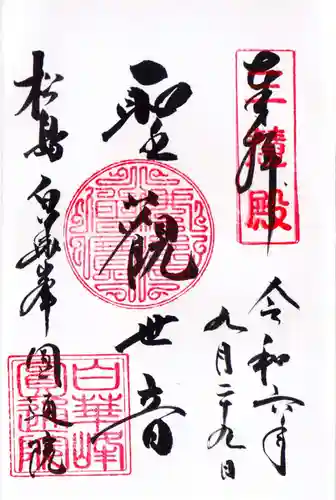 奉拝
三慧殿
令和六年
九月二十九日
聖観世音
松島 白華峰 圓通院
白華峰
圓通院